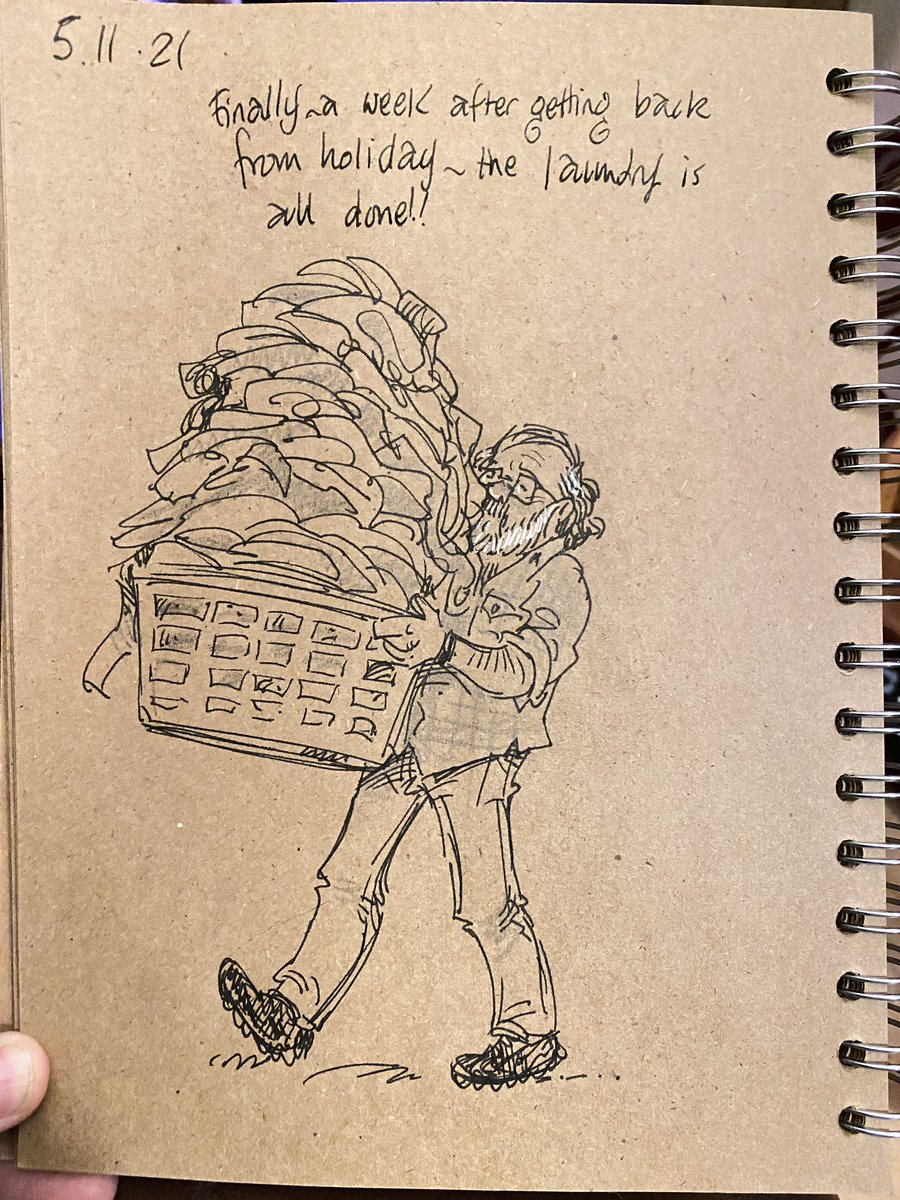 5.11.21
Finally ~ a week after getting back
from holiday ~ the laundry is
all done!!